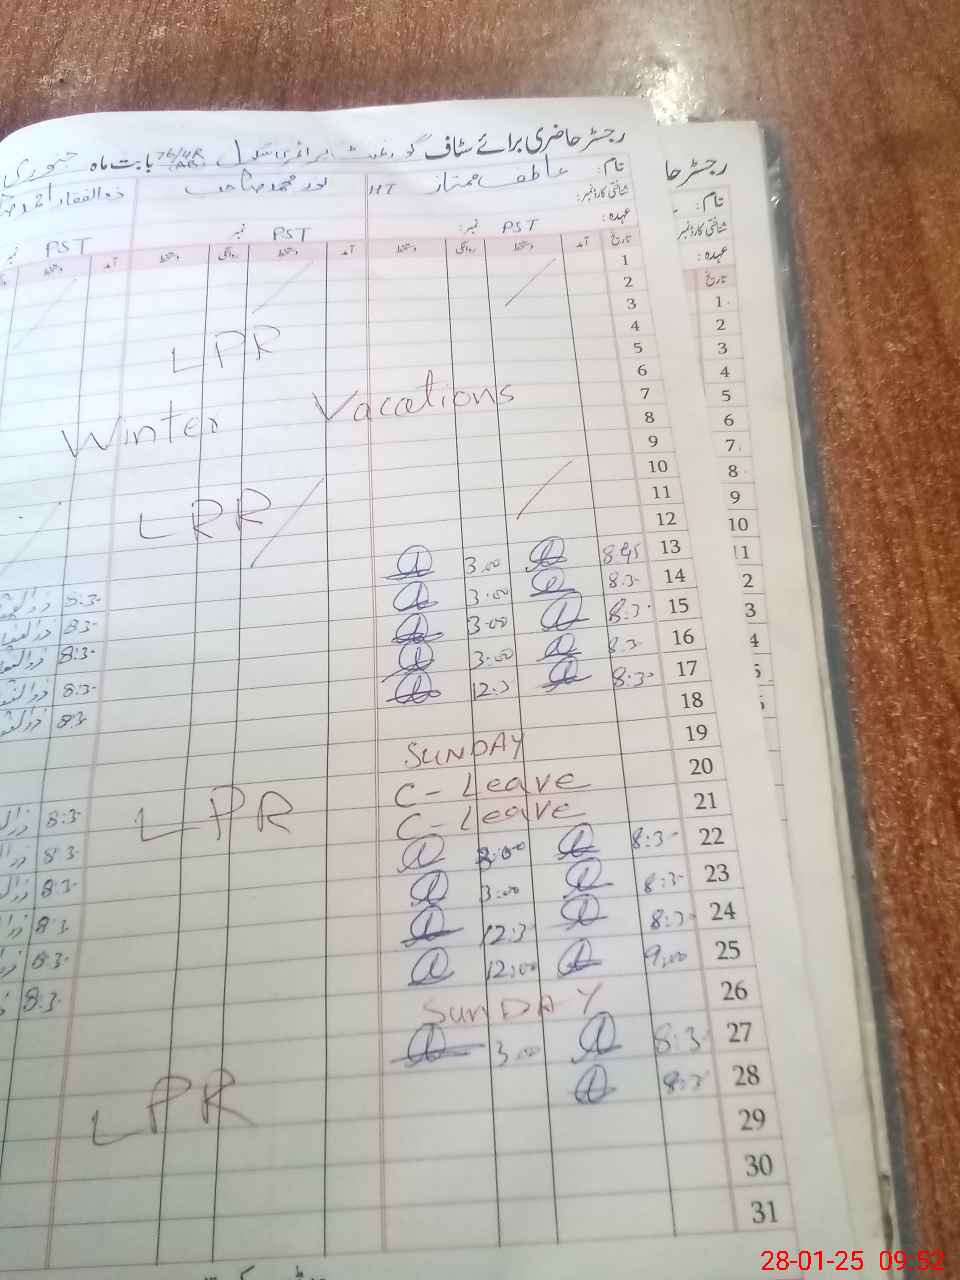 رجسٹر حاضری برائے سٹاف گورنمنٹ پرائمری سکول 76/4R بابت ماہ جنوری
نام: عاطف ممتاز HT نور محمد صاحب ذوالفقار احمد
شناختی کارڈ نمبر:
عہدہ: PST نمبر: PST نمبر PST نمبر
تاریخ آمد دستخط روانگی دستخط آمد دستخط روانگی دستخط آمد دستخط
1
2
3
4
5 LPR
6
7 Winter Vacations
8
9
10
11 LPR
12
13 8.45 3.00
14 8:3- 3.00 8:3-
15 8:3- 3.00 8:3-
16 8:3- 3:00 8:3-
17 8:3- 12:3 8:3-
18 8:3-
19 SUNDAY
20 C- Leave LPR
21 C- Leave 8:3-
22 8:3- 3:00 8:3-
23 8:3- 3:00 8:3-
24 8:3- 12:3- 8:3-
25 9:00 12:00 8:3-
26 SunDAY
27 8:3- 3.00
28 8:3-
29 LPR
30
31
رجسٹر حا
نام:
شناختی کارڈ نمبر
عہدہ:
تاریخ
1
2
3
4
5
6
7
8
9
10
11
2
3
4
28-01-25 09:52